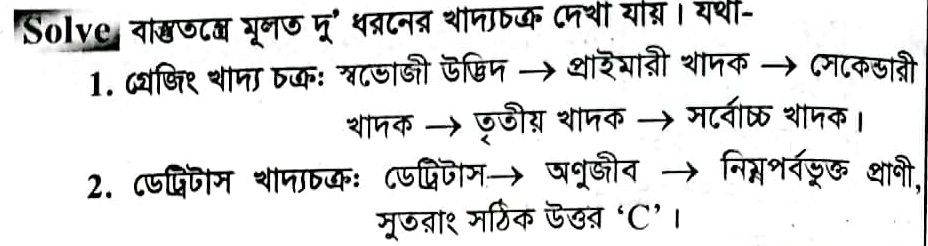 Solve বাস্তুতন্ত্রে মূলত দু' ধরনের খাদ্যচক্র দেখা যায়। যথা-
1. গ্রেজিং খাদ্য চক্র: স্বভোজী উদ্ভিদ → প্রাইমারী খাদক → সেকেন্ডারী
খাদক → তৃতীয় খাদক → সর্বোচ্চ খাদক।
2. ডেট্রিটাস খাদ্যচক্র: ডেট্রিটাস→ অণুজীব → নিম্নপর্বভুক্ত প্রাণী,
সুতরাং সঠিক উত্তর ‘C’ ।